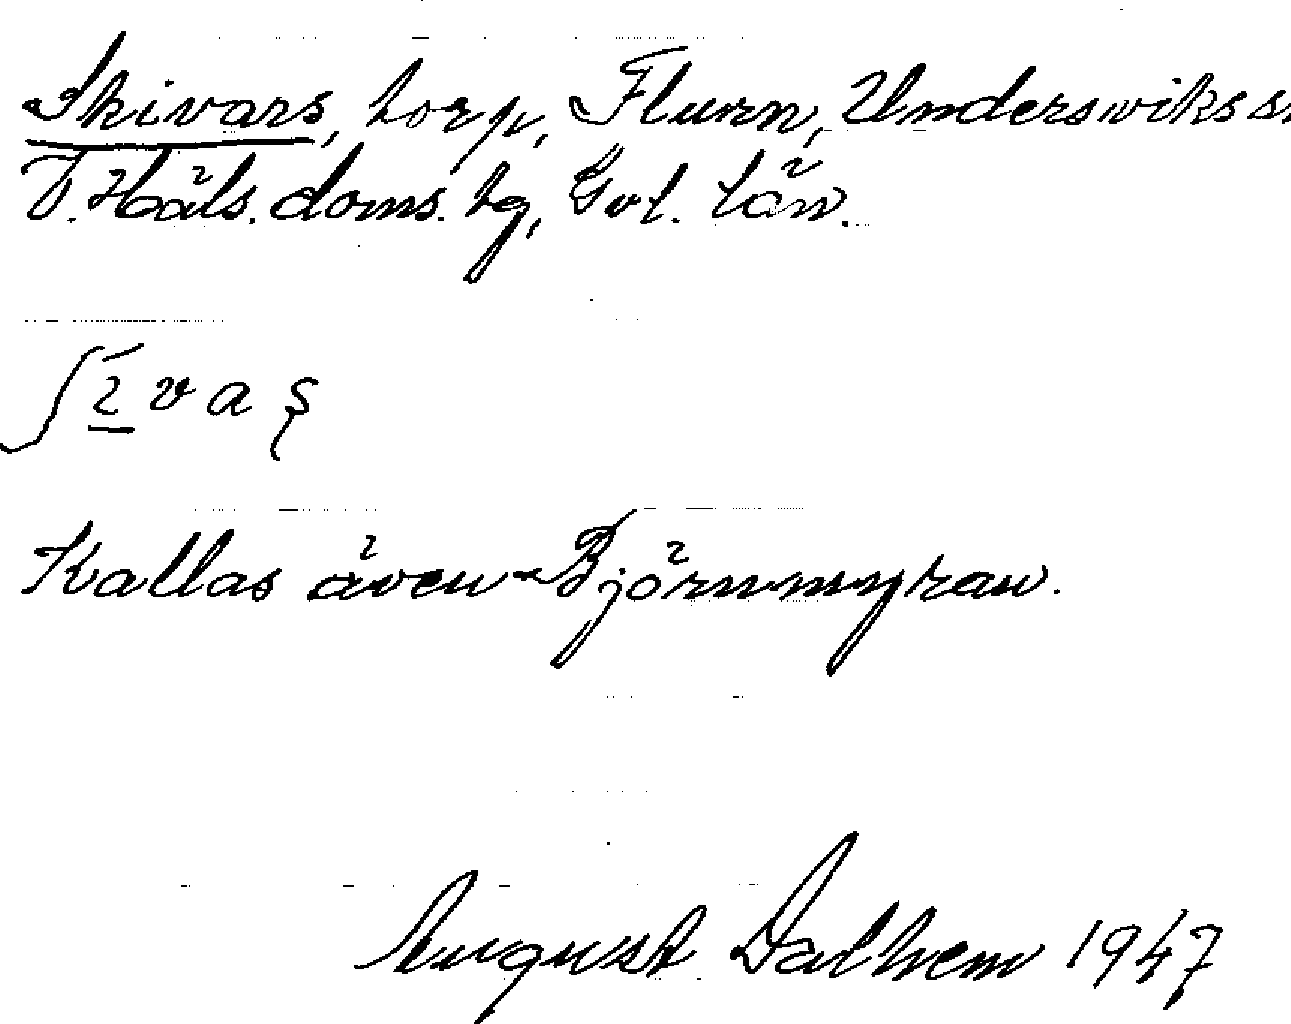 Skivars, torp, Flurn, Undersviks s.
V. Häls. doms. hg, Gvl. län.
ʃi̲vaʂ
Kallas även Björnmyran.
August Dalhem 1947